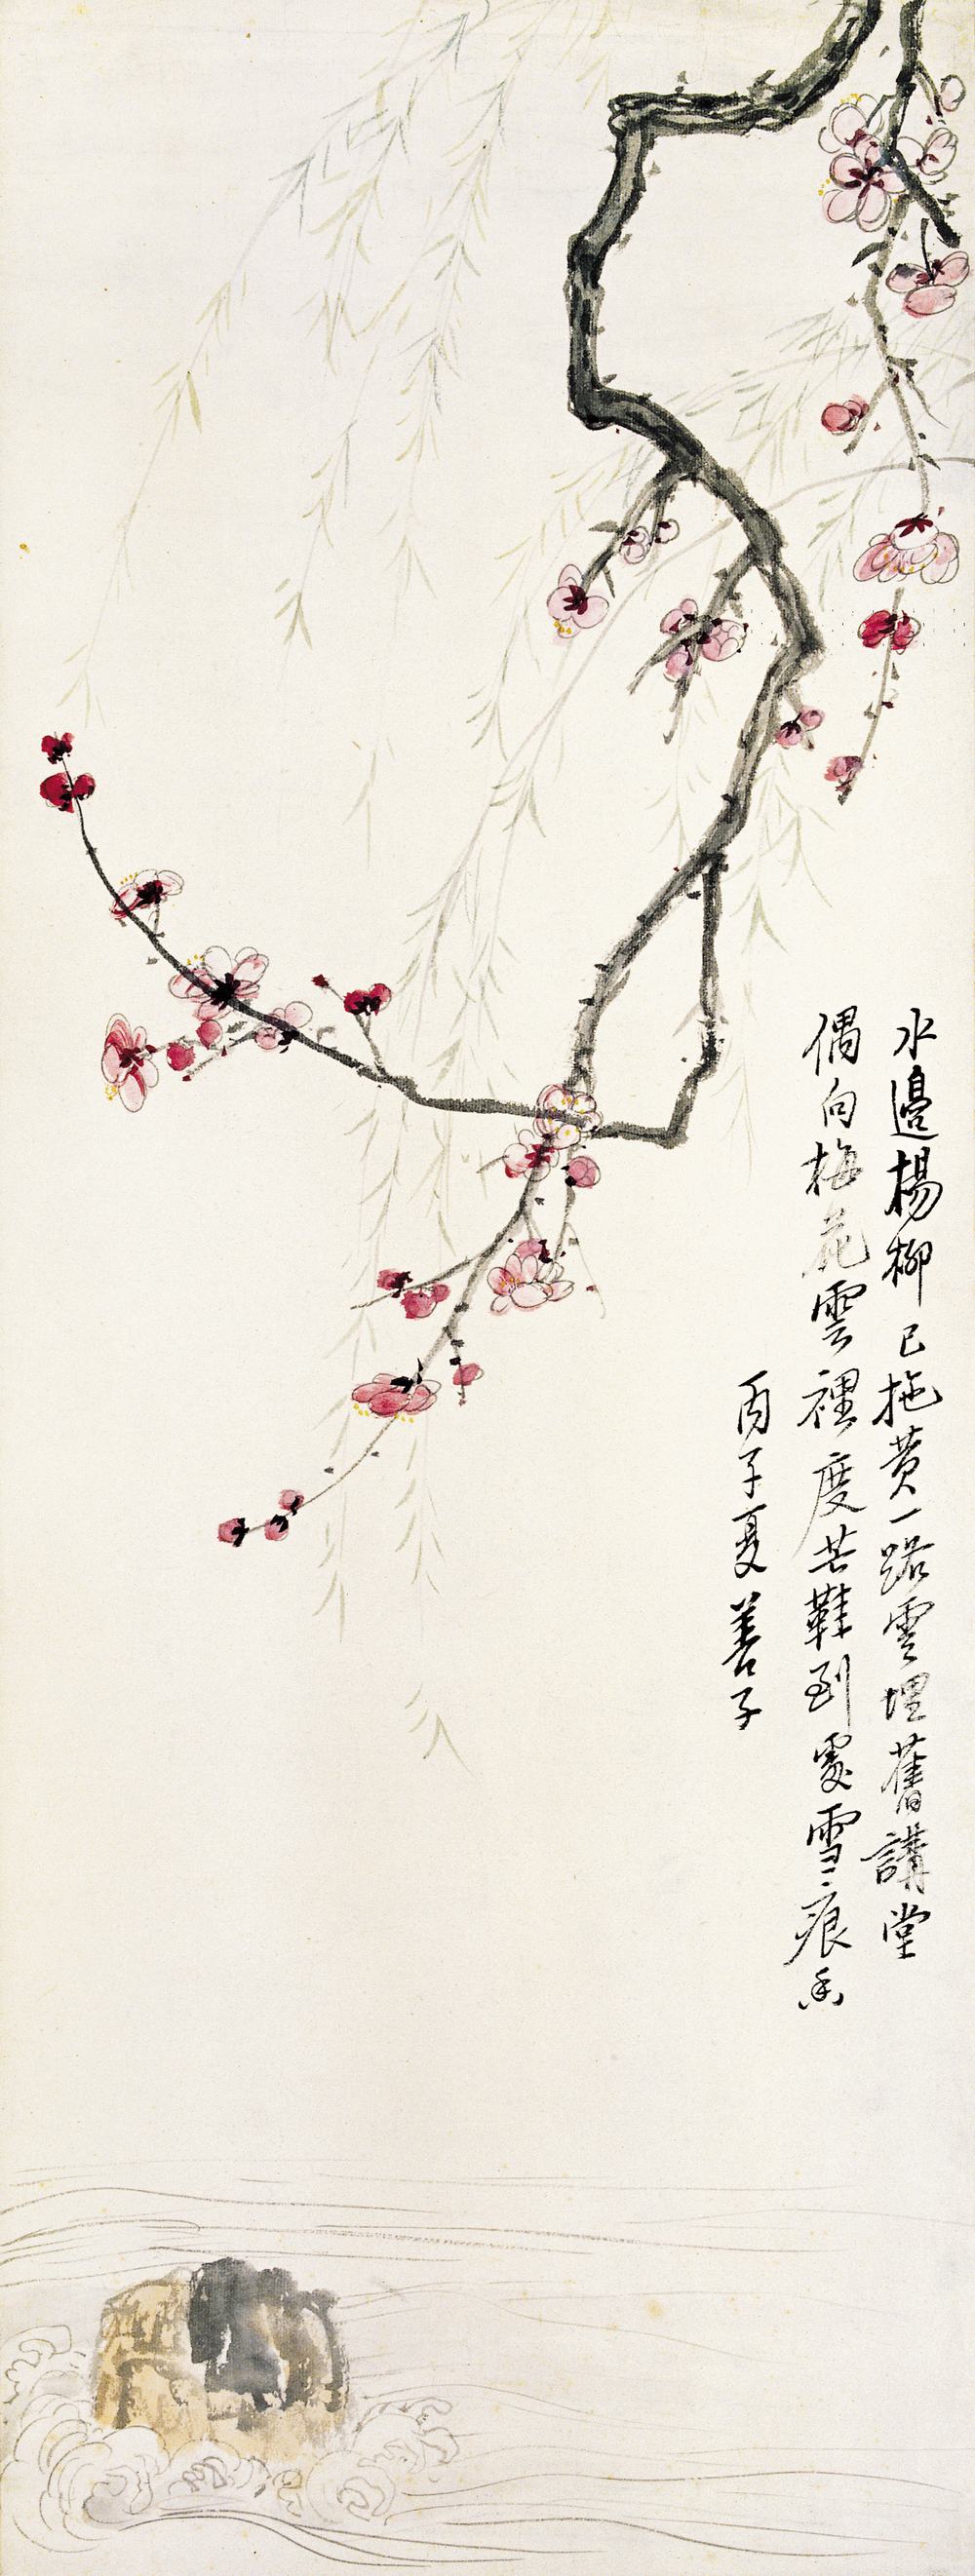 水邊楊柳已拖黃一路雲埋舊講堂
偶向梅花雲裡度芒鞋到處雪痕香
丙子夏善子